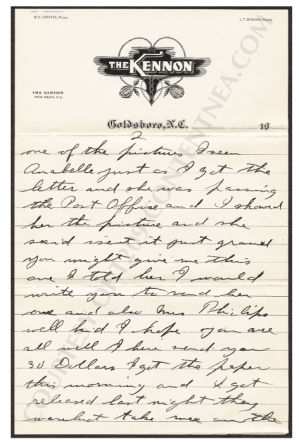 B.H. GRIFFIN, Prop.
L.T. BROWN, Mgr.
THE KENNON
THE GASTON
NEW BERN, N.C.
Goldsboro, N.C. 19
2
one of the picturs I seen
Anabelle just as I got the
letter and she was passing
the Post Office and I showed
her the picture and she
said isent it just grand
you might give me this
one I told her I would
write you to send her
one and also Mrs Philips
well kid I hope you are
all well I here send you
30 Dollars I got the paper
this morning and I got
released last night they
wouldnt take me on the